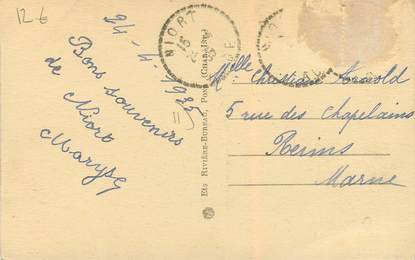 12 €
24-4-1935
Bons souvenirs
de Niort
Maryse
NIORT
15
Ets RIVIÈRE-BUREAU, PONS (CHAR.-INF.)
Melle Christiane Arnold
5 rue des Chapelains
Reims
Marne